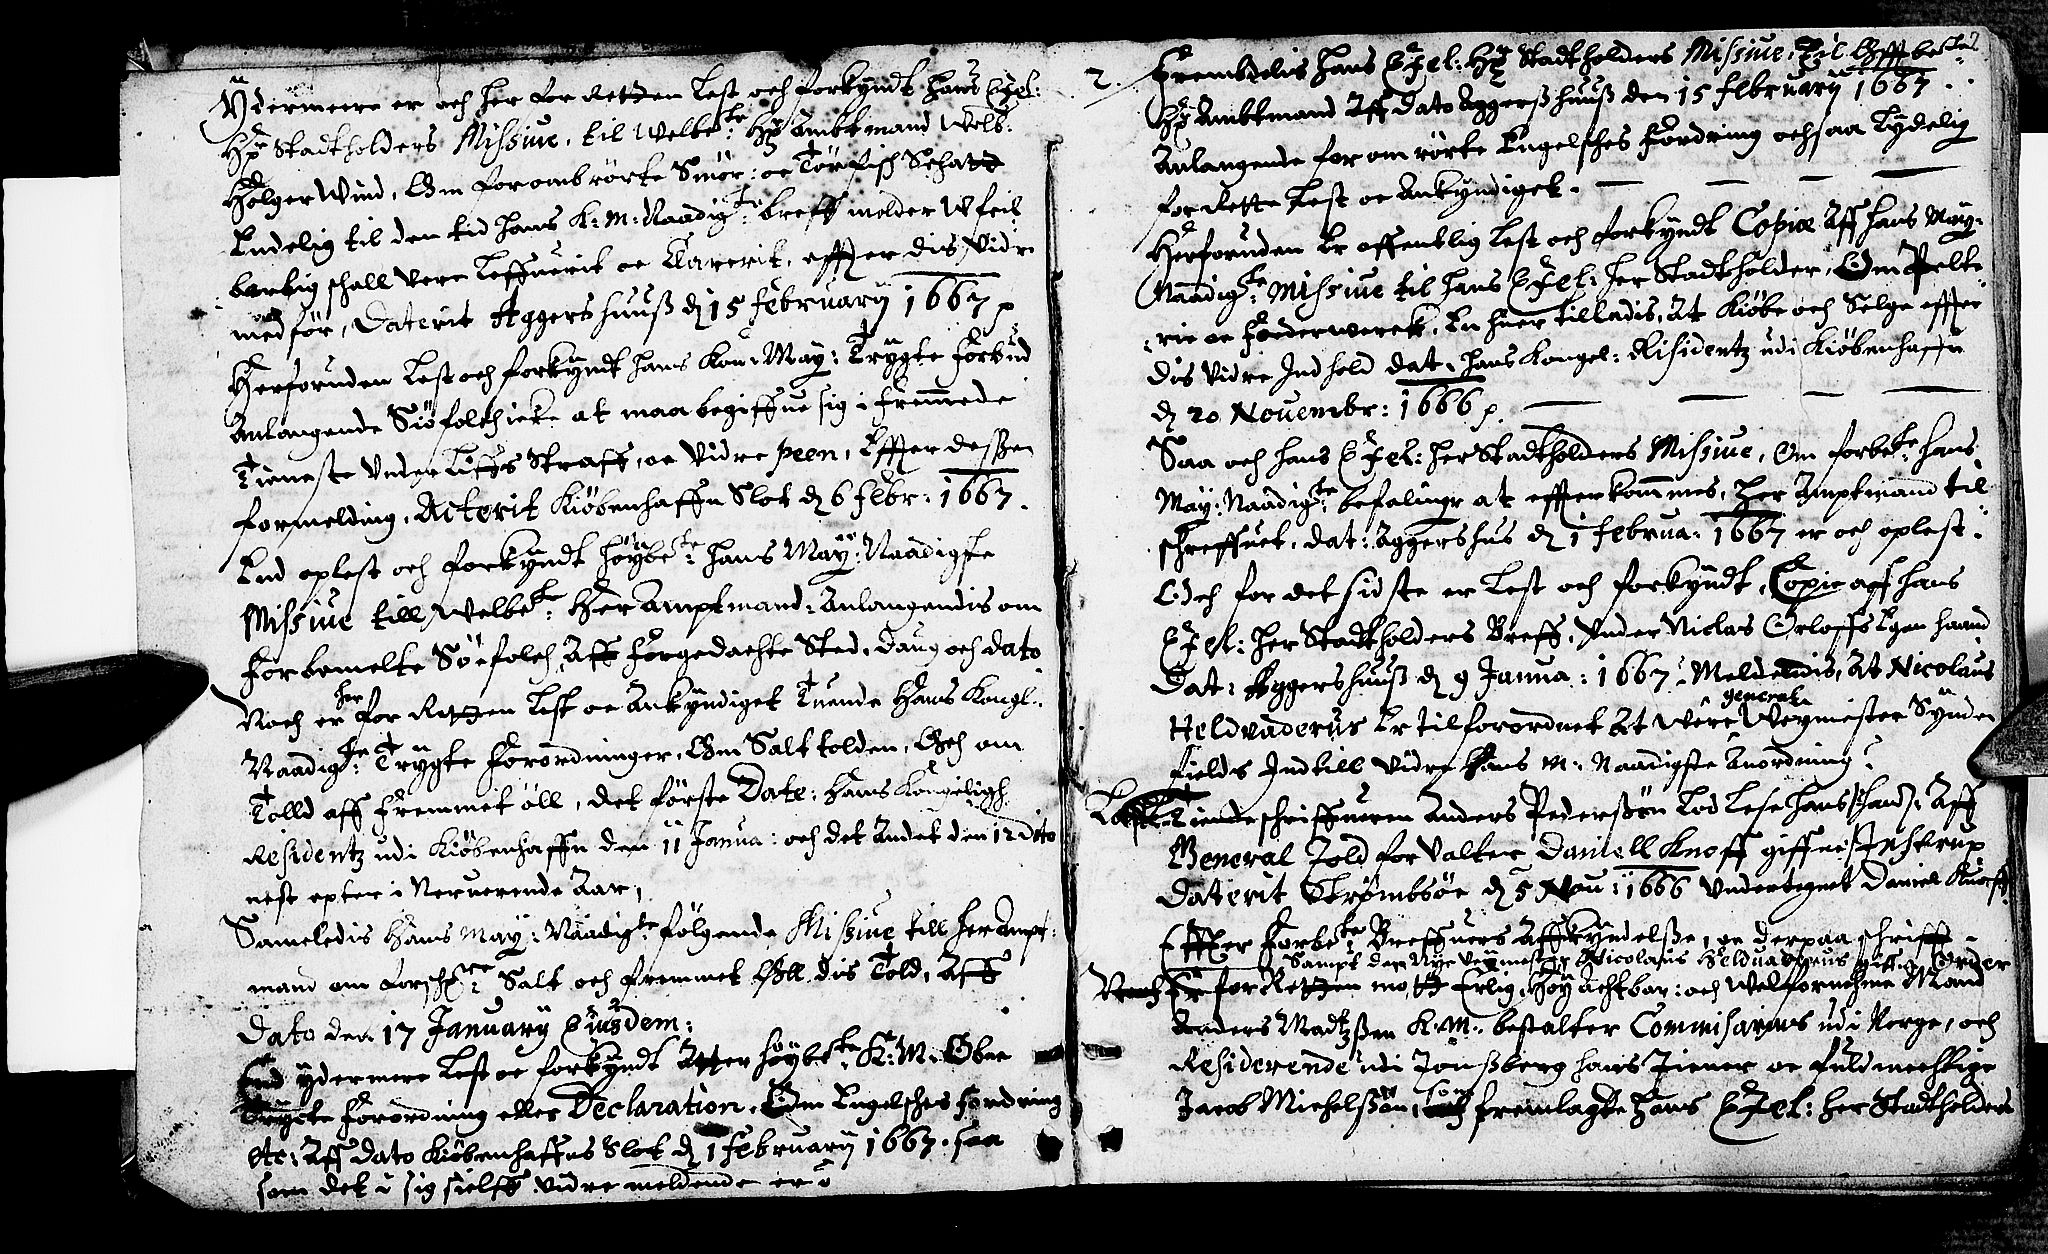 Ydermeere er och her for Retten Lest och forkyndt Hans Exel:
Hr: Stadtholders Missive, til Welbte: Hr: Ambtmand Welb:
Holger Wind, Om forombrörte Smör: oc Törfisch Schatt
Endelig til den tid Hans K: M: Naadigste: breff melder Wfeil
barlig schall vere Leffuerit oc Clarerit, effter dis Vidre
medför, Daterit Aggershuuss d 15 February 1667
Herforuden Lest och forkyndt Hans Kon: May: Trygte Forbud
Anlangende Siöfolch icke at maa begiffue sig i fremmede
Tieneste Vnder Liffs Straff, oc Vidre peen, Effter dessen
formelding, Acterit Kiöbenhaffn Slot d 6 Febr: 1667.
End oplest och forkyndt höybete: Hans May: Naadigste
Missive till Welbte: Her Amptmand: Anlangendis om
Forbemelte Söefolch, Aff Forgedachte Sted, Daug och dato
Noch er her for Retten Lest oc Ankyndiget Tuende Hans Kongl:
Naadigste: Trygte Forordninger, Om Salt tolden, Och om
Tolld aff Fremmet öll, det förste Date: Hans Kongeligh
Residentz udi Kiöbenhaffn den 11 Janua: och det Andet den 12 Dito
nest epter i Neruerende Aar,
Sameledis Hans May: Naadigte fölgende Missive till Her Ampt:
mand om forschrne: Salt och fremmet Öll dis Told, Aff
Dato den 17 January Eiusdem:
End ydermere Lest oc forkyndt Atter höybte: K: M: Obne
Trygte Forordning eller Declaration, Om Engelsches Fordring
etc: Aff Dato Kiöbenhaffns Slot d 1 February 1667. saa
som det i sig sielff Vidre meldende er
2. Fremdelis Hans Exel: Hr Stadtholders Missive, Til Offtbete
Hr Ambtmand Aff Dato Aggerss huuss den 15 february 1667.
Anlangende for omrörte Engelsches Fordring ochsaa Tydelig
for Rette Lest oc Ankyndiget.
Herforuden Er offentlig Lest och forkyndt Copie Aff Hans May:
Naadigste: Missive til Hans Exel: Her Stadtholder, Om Pelte
rie oc Foederwerck, En huer tilladis, At Kiöbe och Selge effter
dis Vidre Indhold dat: Hans Kongel: Residentz udi Kiöbenhaffn
d 20 Novembr: 1666
Saa och Hans Exel: Her Stadtholders Missive, Om forbete: Hans
May: Naadigte: befalingr at efterkommes, Her Amptmand til
schreffuet, dat: Aggershus d 1 Februa: 1667 er och oplest.
Och for det sidste er Lest och forkyndt, Copie aff Hans
Exel: Her Stadtholders Breff, Vnder Niclas Orloffs Egen Haand
Dat: Aggershuuss d 9 Janua: 1667. Meldendis, At Nicolaus
Heldvaderus Er tilforordnet At Were general Wegmester Synden
fields Indtill Vidre Hans M: Naadigste Anordning
Tiendeschriffueren Anders Pederssön Lod Lese Hans Aff
General Told forvalter Daniell Knoff giffne Instrup
Daterit Strömbsöe d 5 Nou: 1666 Vndertegnet Daniel Knoff
Effter Forbete: Breffuers Affkyndelsse, oc derpaa schriff
Sampt den Nye Veymester Nicolaus Helduaderus giffne Order
Er for Retten mött Erlig, Höyachtbar: och Welfornehme Mand
Anders Madtzssen K: M: bestalter Commisarius udi Norge, och
Residerende udi Tonssberg hans Tiener oc fuldmechtige
Jacob Michelssön, som fremlagte Hans Exel: Her Stadtholders